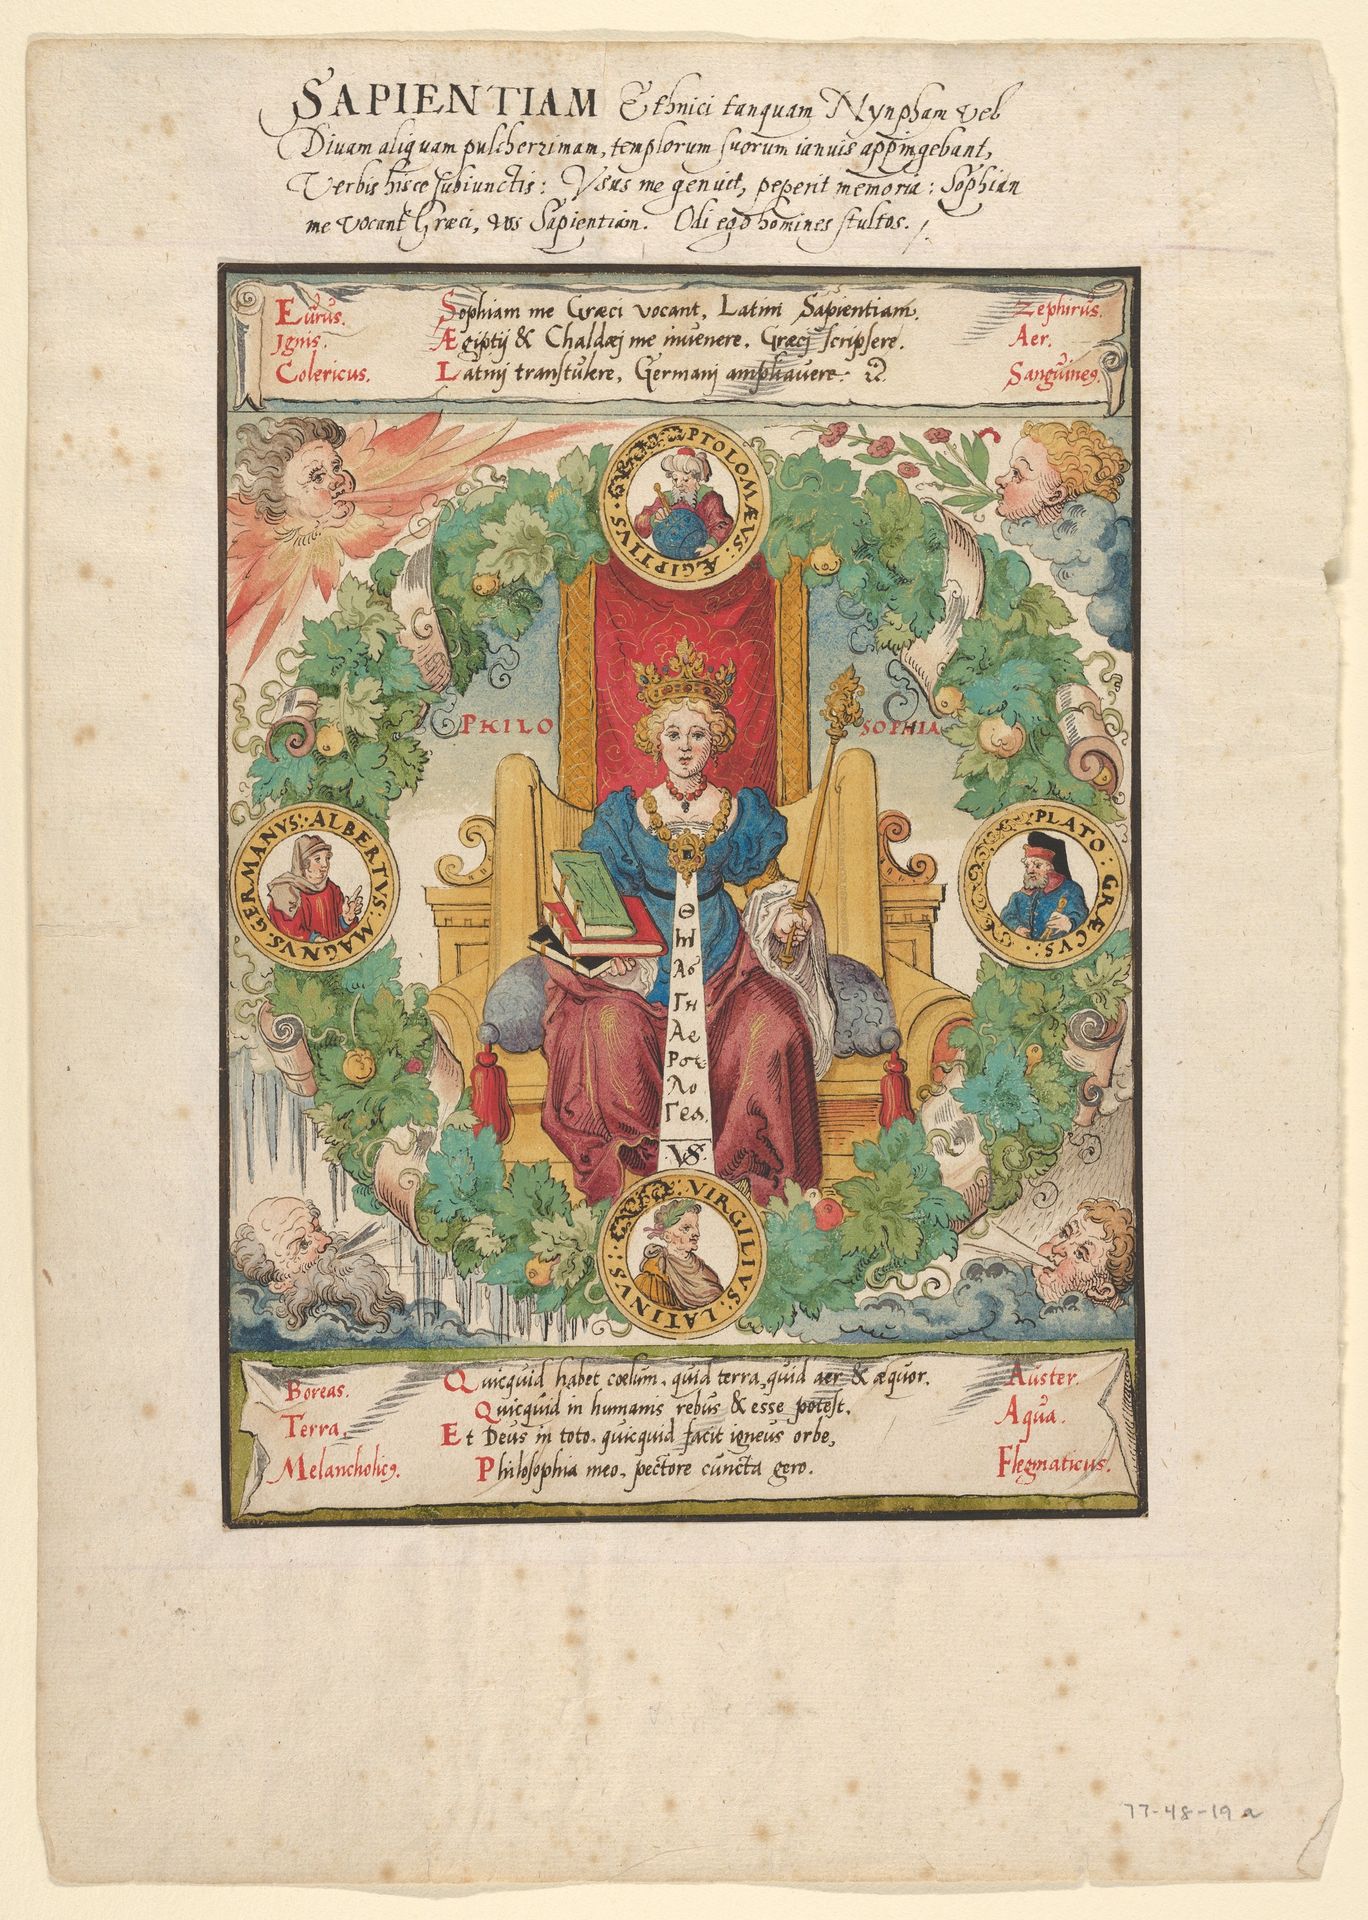 SAPIENTIAM Ethnici tanquam Nynpham vel
Divam aliquam pulcherrimam, templorum suorum ianuis appingebant,
Verbis hisce subiunctis: Vsus me genuit, peperit memoria: Sophian
me vocant Græci, vos Sapientiam. Odi ego homines stultos.
Eurus.
Ignis.
Colericus.
Sophiam me Græci vocant, Latini Sapientiam.
Ægiptij & Chaldæj me invenere, Græcj scripsere.
Latinij transtulere, Germanj ampliavere.
Zephirus.
Aer.
Sanguineꝰ.
PTOLOMÆVS: ÆGIPTIVS
PHILO SOPHIA
GERMANVS: ALBERTVS: MAGNVS
PLATO: GRÆCVS
Θ
Ασ
Γη
Αε
Λο
Γεα
VS
VIRGILIVS: LATINVS
Boreas.
Terra.
Melancholicꝰ.
Quicquid habet cœlum, quid terra, quid aer & æquor.
Quicquid in humanis rebus & esse potest.
Et Deus in toto, quicquid facit igneus orbe,
Philosophia meo, pectore cuncta gero.
Auster.
Aqua.
Flegmaticus.
77-48-19 a